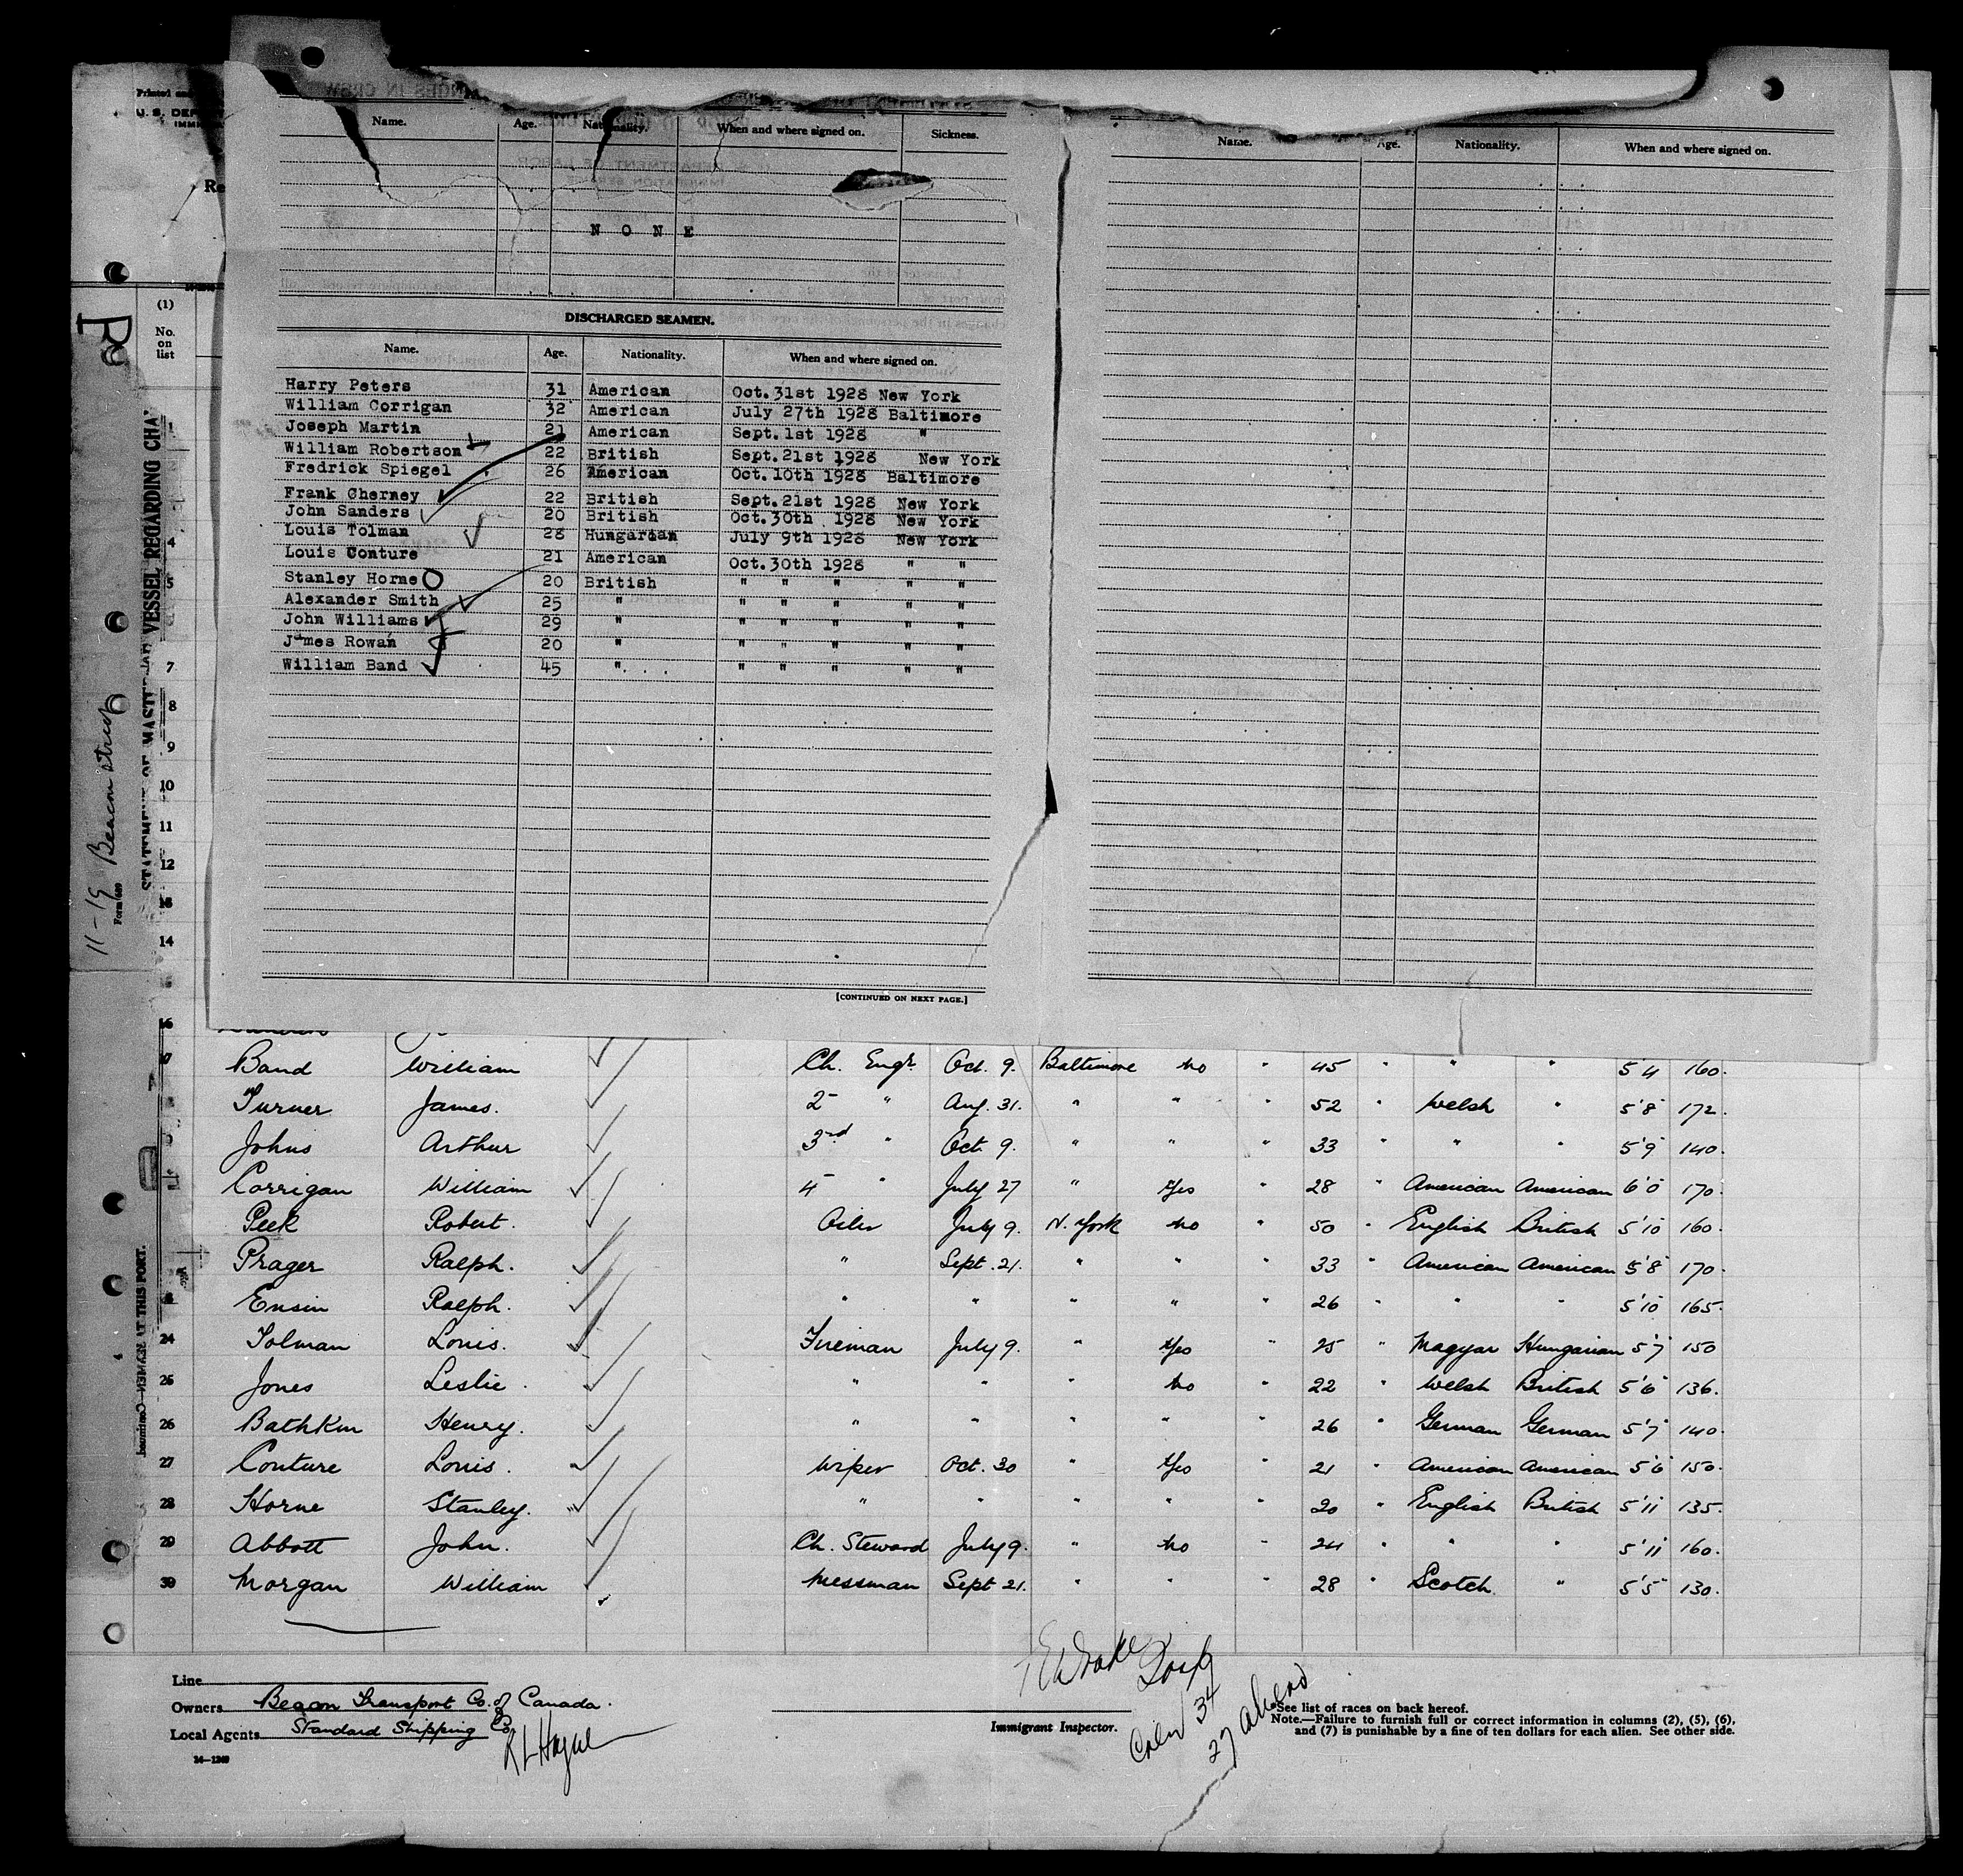 Printed
U. S. DEP
IMMI
Re
(1)
No.
on
list
11-19 Beacon
Form 689
STATEMENT OF MASTER VESSEL REGARDING CHA
Name. Age. Nationality. When and where signed on. Sickness.
N O N E
DISCHARGED SEAMEN.
Name. Age. Nationality. When and where signed on.
Harry Peters 31 American Oct. 31st 1928 New York
William Corrigan 32 American July 27th 1928 Baltimore
Joseph Martin 21 American Sept. 1st 1928 "
William Robertson 22 British Sept. 21st 1928 New York
Fredrick Spiegel 26 American Oct. 10th 1928 Baltimore
Frank Cherney 22 British Sept. 21st 1928 New York
John Sanders 20 British Oct. 30th 1928 New York
Louis Tolman 28 Hungarian July 9th 1928 New York
Louis Conture 21 American Oct. 30th 1928 " "
Stanley Horne 20 British " " " " "
Alexander Smith 25 " " " " " "
John Williams 29 " " " " " "
James Rowan 20 " " " " " "
William Band 45 " " " " " "
[CONTINUED ON NEXT PAGE.]
Name. Age. Nationality. When and where signed on.
1
4
5
7
8
9
10
11
12
13
14
16
Band William Ch. Engr. Oct. 9. Baltimore No " 45 " " " 5'4 160.
Turner James. 2 " Aug. 31. " " " 52 " Welsh " 5'8 172.
Johns Arthur 3rd " Oct 9. " " " 33 " " " 5'9 140.
Corrigan William 4 " July 27 " Yes " 28 " American American 6'0 170.
Peek Robert. Oiler July 9. N. York No " 50 " English British 5'10 160.
Prager Ralph. " Sept. 21. " " " 33 " American American 5'8 170.
Ensin Ralph. " " " " " 26 " " " 5'10 165.
24 Tolman Louis. Fireman July 9. " Yes " 25 " Magyar Hungarian 5'7 150
25 Jones Leslie. " " " No " 22 " Welsh British 5'6 136.
26 Bathkin Henry. " " " " 26 " German German 5'7 140.
27 Conture Louis. Wiper Oct. 30 " Yes " 21 " American American 5'6 150.
28 Horne Stanley. " " " " " 20 " English British 5'11 135.
29 Abbott John. Ch. Steward July 9. " No " 24 " " " 5'11 160.
30 Morgan William Messman Sept 21. " " " 28 " Scotch. " 5'5 130.
AT THIS PORT.
Line
Owners Beacon Transport Co. of Canada.
Local Agents Standard Shipping Co.
R L Hague
14—1269
Immigrant Inspector.
34
27 aliens
*See list of races on back hereof.
Note.—Failure to furnish full or correct information in columns (2), (5), (6),
and (7) is punishable by a fine of ten dollars for each alien. See other side.